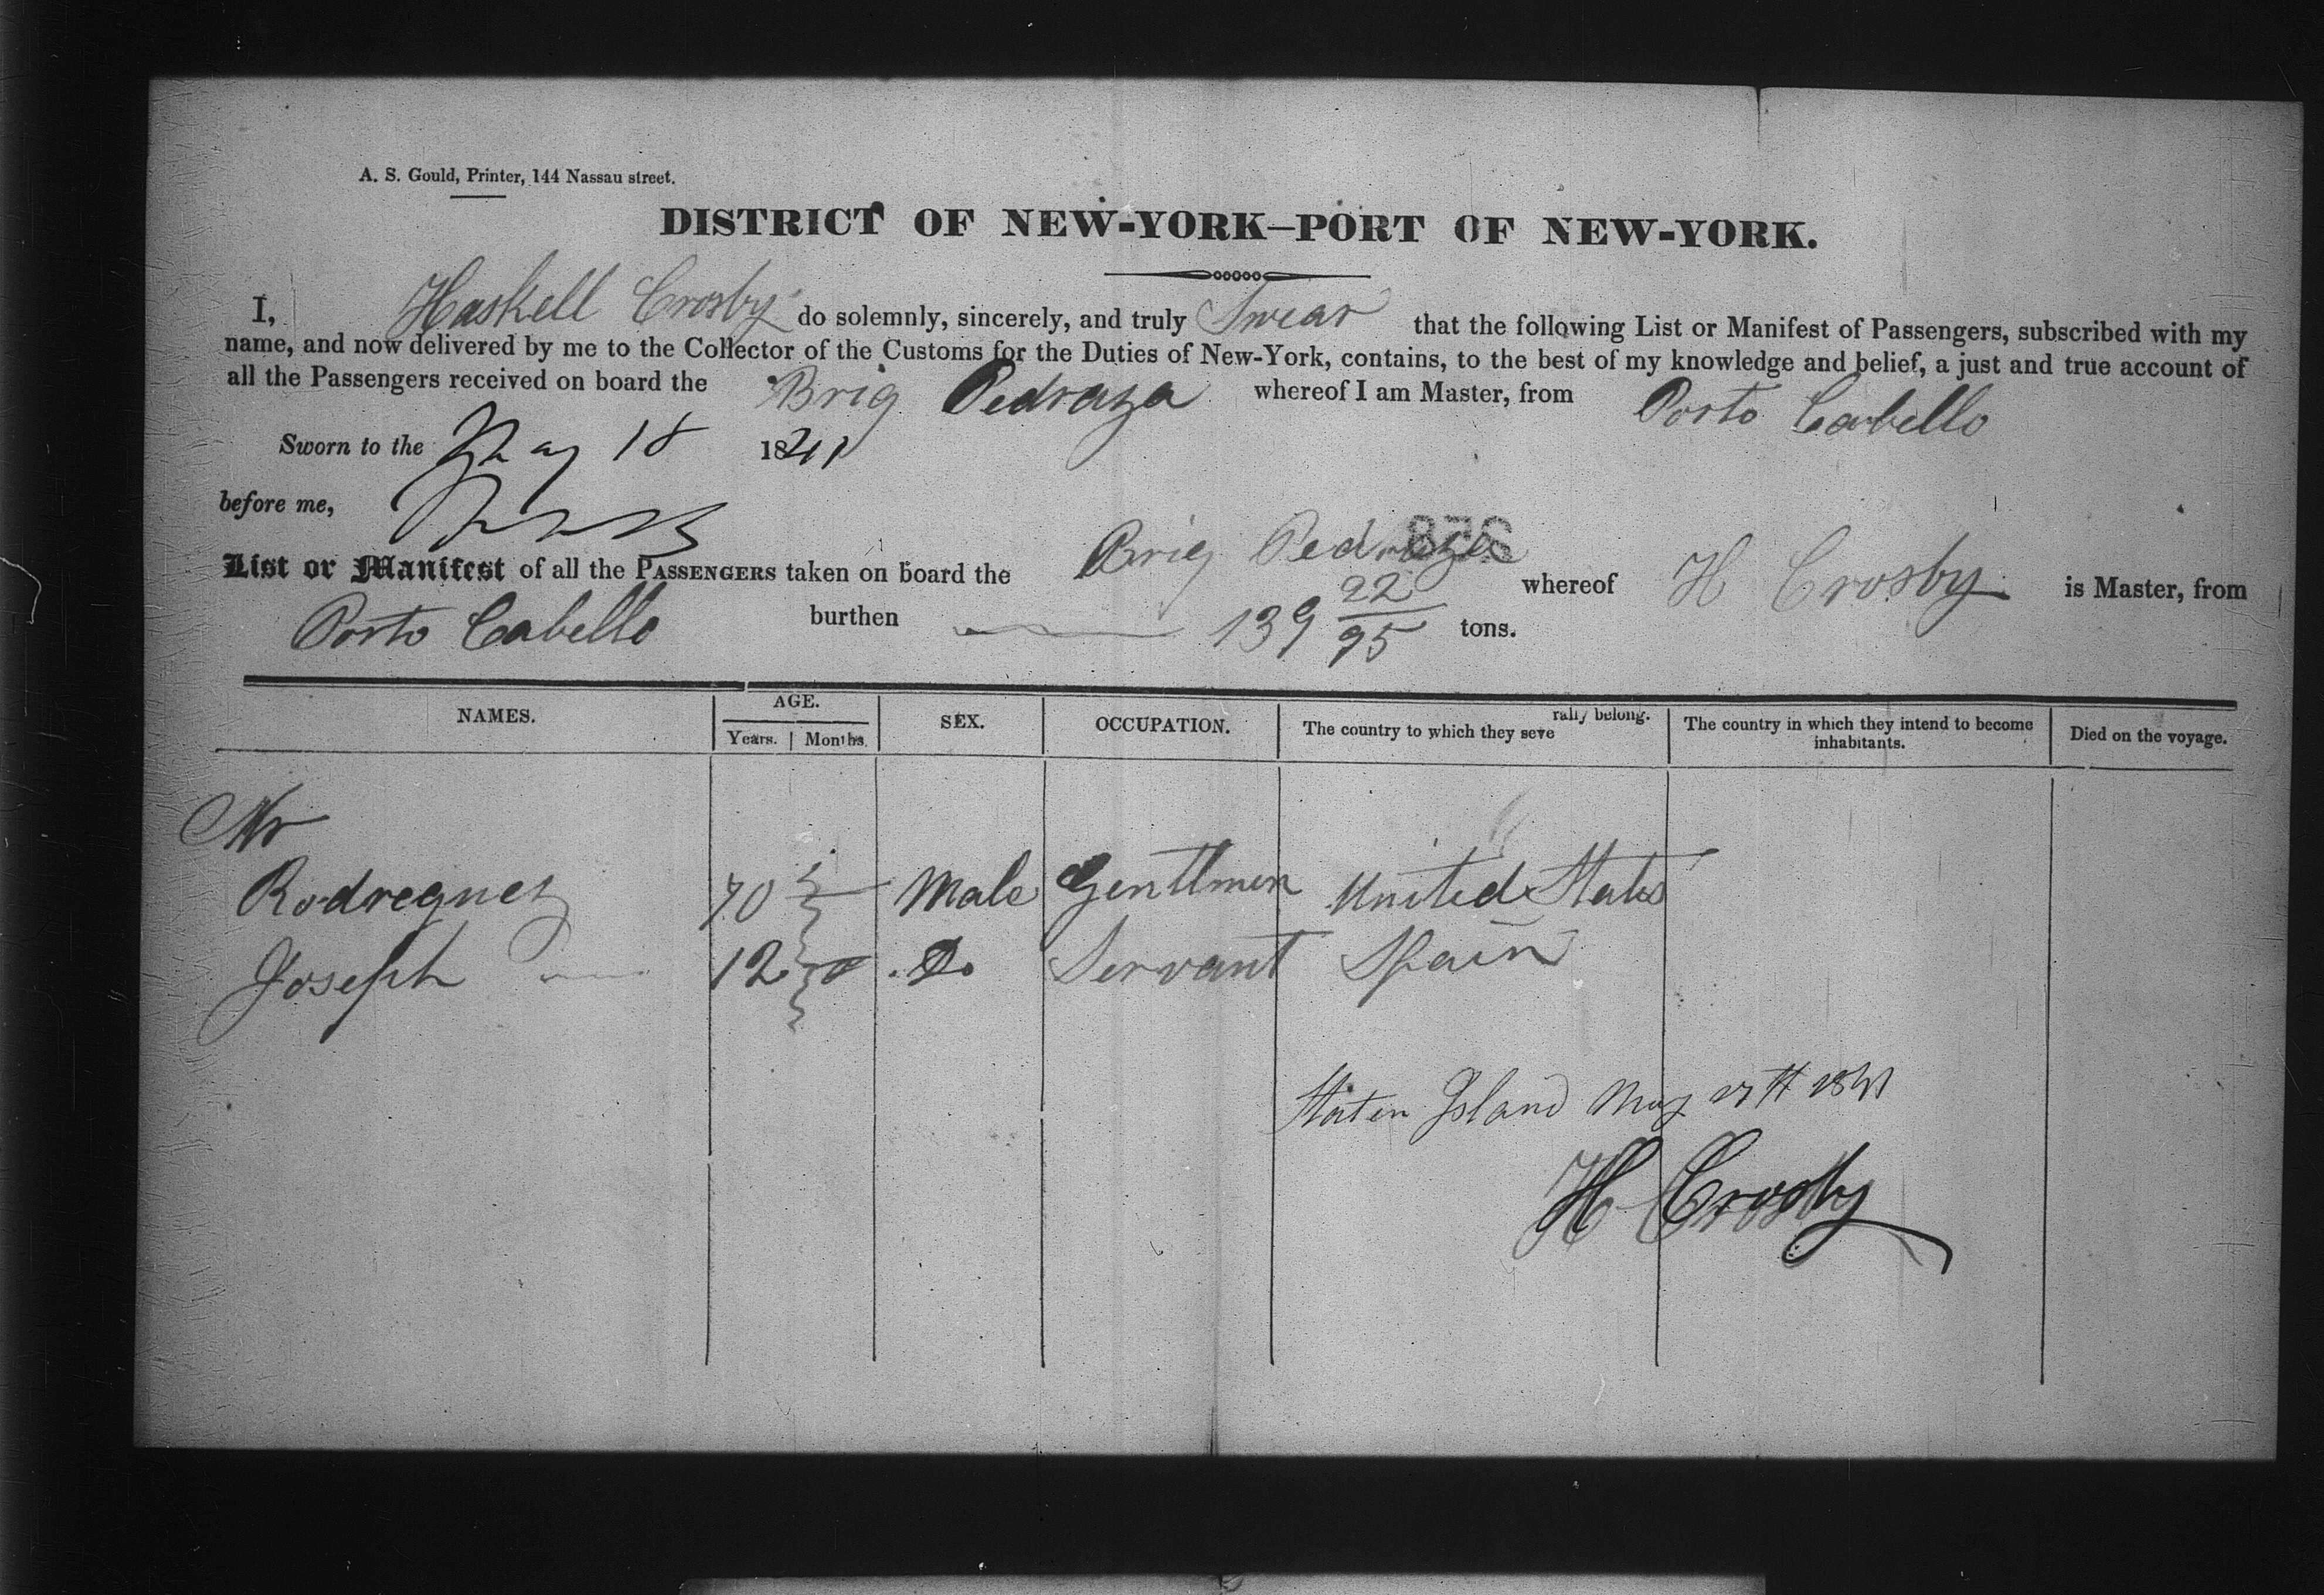 A. S. Gould, Printer, 144 Nassau street.
DISTRICT OF NEW-YORK—PORT OF NEW-YORK.
I, Haskell Crosby do solemnly, sincerely, and truly Swear that the following List or Manifest of Passengers, subscribed with my
name, and now delivered by me to the Collector of the Customs for the Duties of New-York, contains, to the best of my knowledge and belief, a just and true account of
all the Passengers received on board the Brig Pedraza whereof I am Master, from Porto Cabello
Sworn to the May 18 1841
before me,
List or Manifest of all the PASSENGERS taken on board the Brig Pedraza whereof H Crosby is Master, from
Porto Cabello burthen 139 22/95 tons.
NAMES. AGE. Years. Months. SEX. OCCUPATION. The country to which they severally belong. The country in which they intend to become inhabitants. Died on the voyage.
Mr
Rodreguez 70 Male Gentlmen United States
Joseph 12 Do Servant Spain
Staten Island May 17th 1841
H Crosby